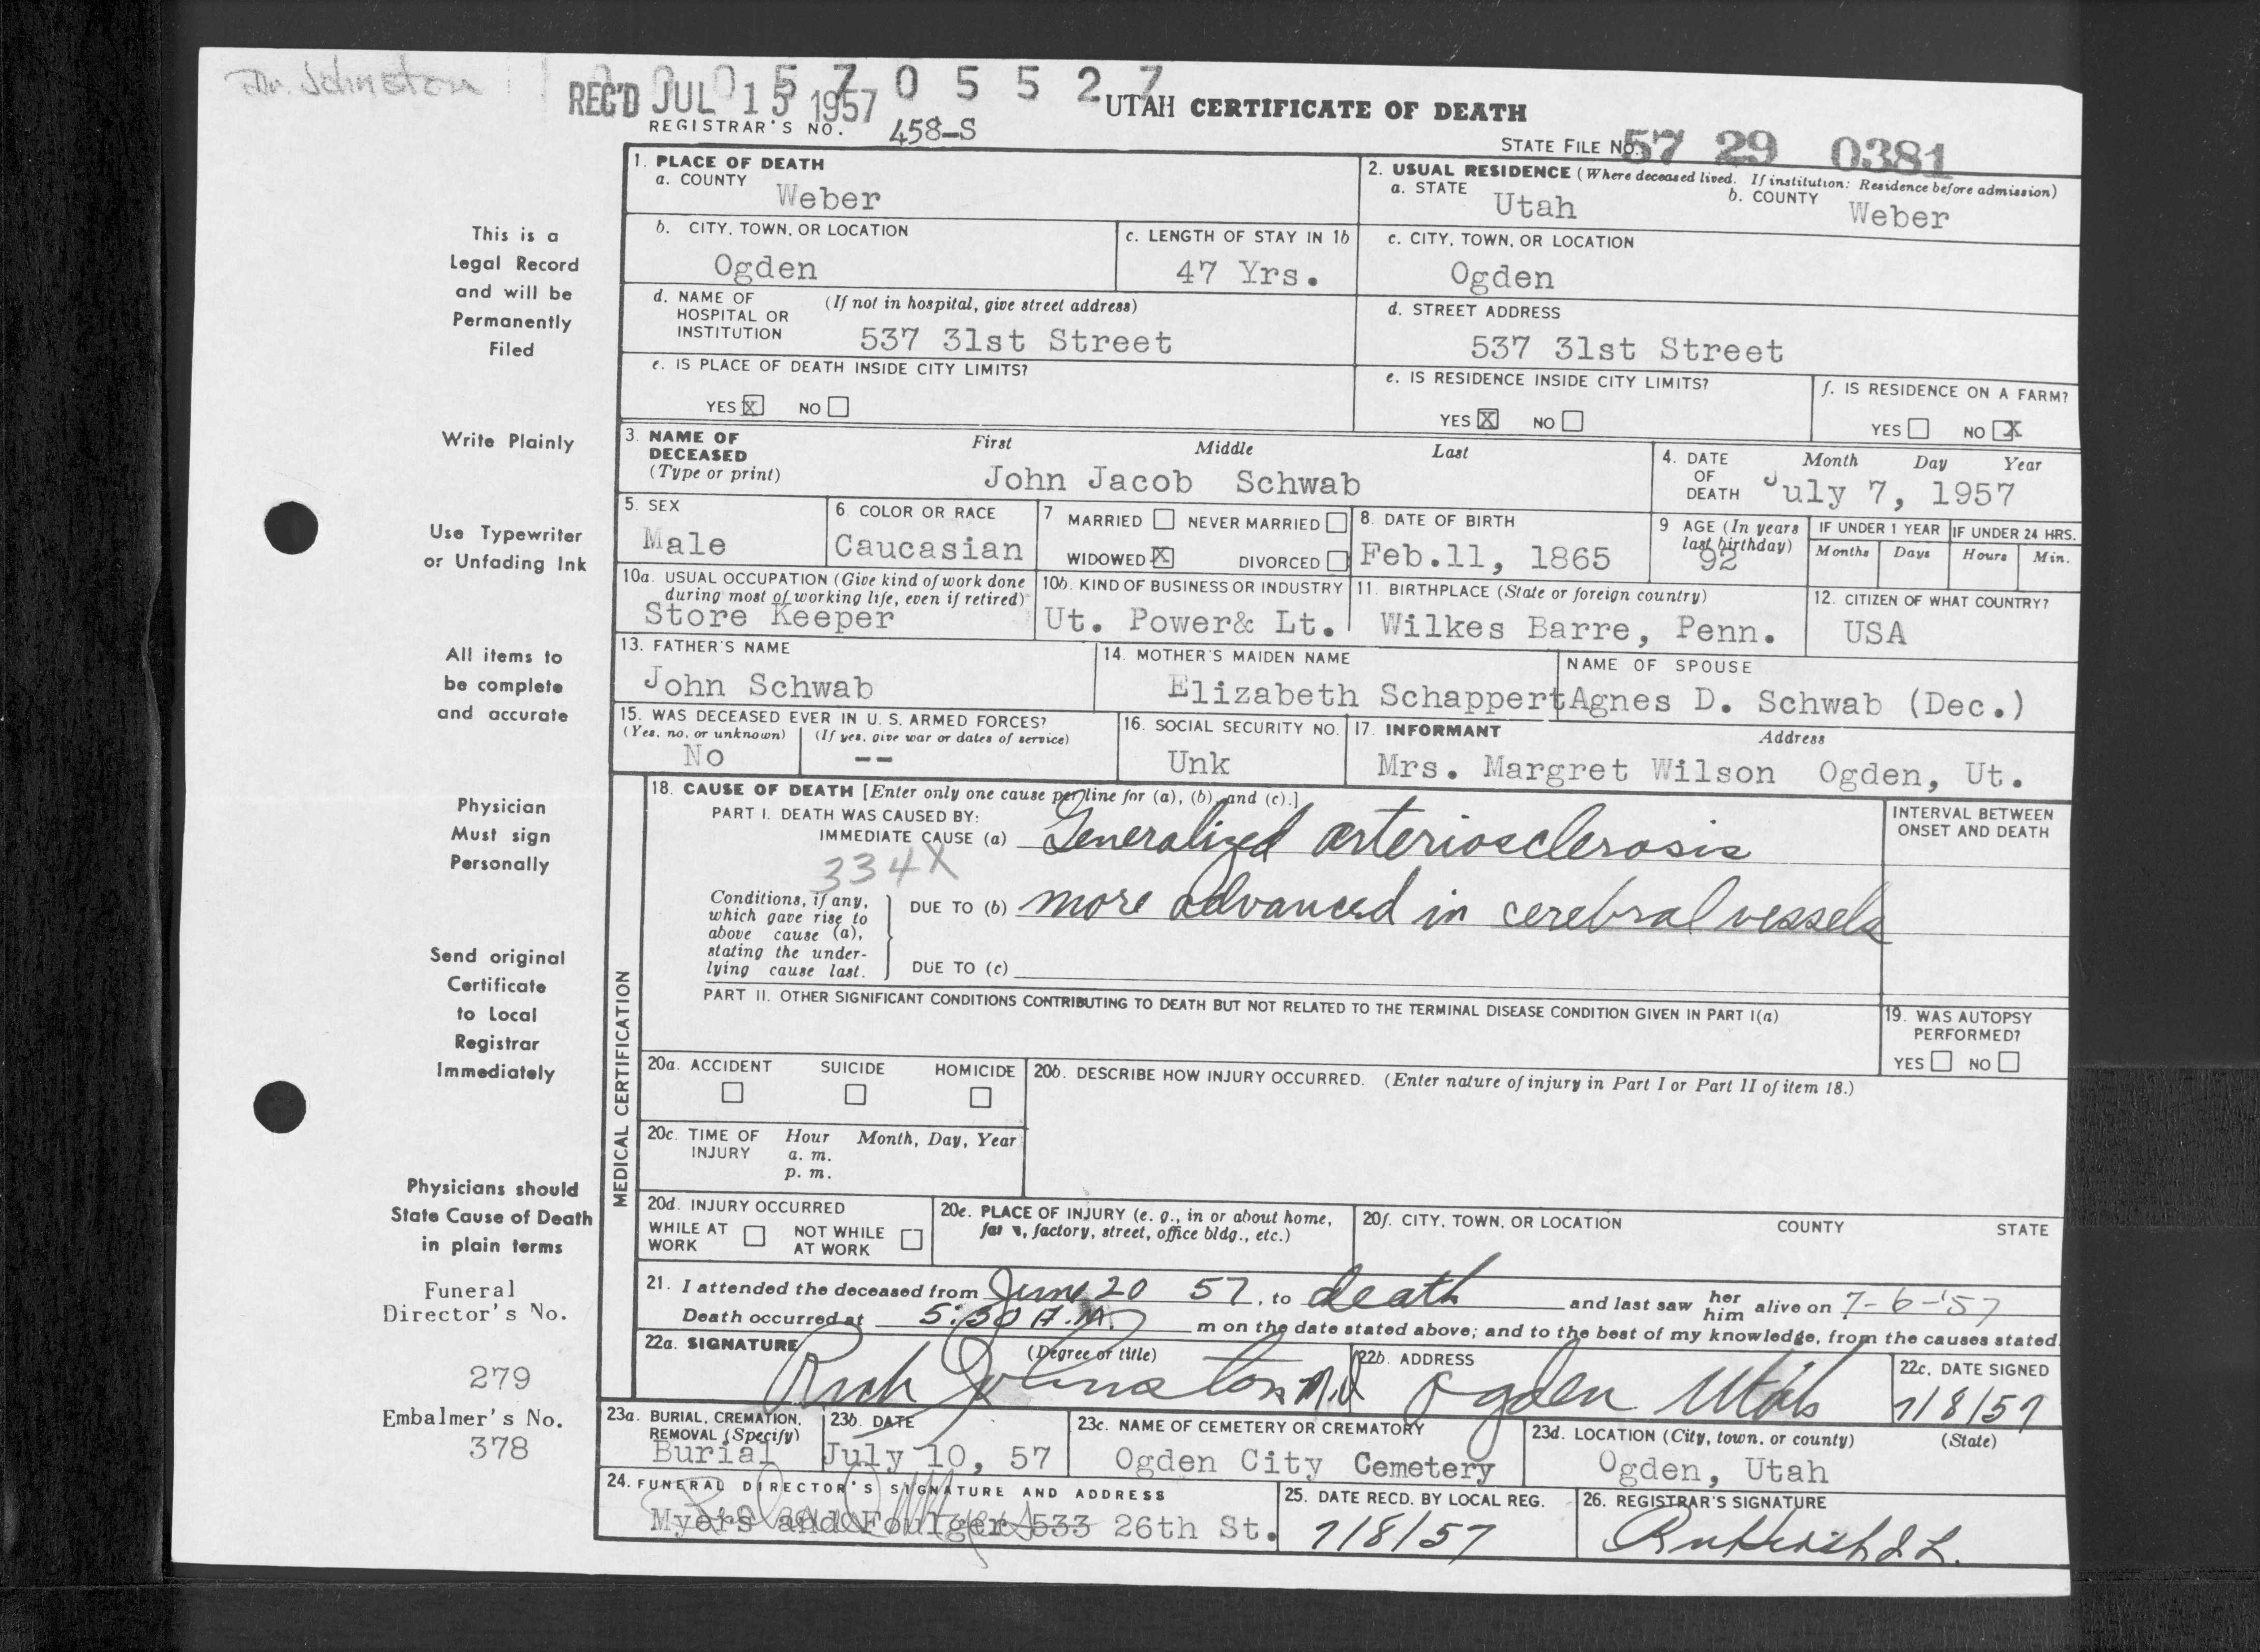 Dr. Johnston
REC'D JUL 15 1957
0 0 0 5 7 0 5 5 2 7
UTAH CERTIFICATE OF DEATH
REGISTRAR'S NO. 458-S
STATE FILE NO. 57 29 0381
This is a
Legal Record
and will be
Permanently
Filed
Write Plainly
Use Typewriter
or Unfading Ink
All items to
be complete
and accurate
Physician
Must sign
Personally
Send original
Certificate
to Local
Registrar
Immediately
Physicians should
State Cause of Death
in plain terms
Funeral
Director's No.
279
Embalmer's No.
378
1. PLACE OF DEATH
a. COUNTY
Weber
2. USUAL RESIDENCE (Where deceased lived. If institution: Residence before admission)
a. STATE
Utah
b. COUNTY
Weber
b. CITY, TOWN, OR LOCATION
Ogden
c. LENGTH OF STAY IN 1b
47 Yrs.
c. CITY, TOWN, OR LOCATION
Ogden
d. NAME OF (If not in hospital, give street address)
HOSPITAL OR
INSTITUTION
537 31st Street
d. STREET ADDRESS
537 31st Street
e. IS PLACE OF DEATH INSIDE CITY LIMITS?
YES X NO
e. IS RESIDENCE INSIDE CITY LIMITS?
YES X NO
f. IS RESIDENCE ON A FARM?
YES NO X
3. NAME OF
DECEASED
(Type or print)
First Middle Last
John Jacob Schwab
4. DATE
OF
DEATH
Month Day Year
July 7, 1957
5. SEX
Male
6. COLOR OR RACE
Caucasian
7 MARRIED NEVER MARRIED
WIDOWED X DIVORCED
8. DATE OF BIRTH
Feb.11, 1865
9 AGE (In years
last birthday)
92
IF UNDER 1 YEAR
Months Days
IF UNDER 24 HRS.
Hours Min.
10a. USUAL OCCUPATION (Give kind of work done
during most of working life, even if retired)
Store Keeper
10b. KIND OF BUSINESS OR INDUSTRY
Ut. Power& Lt.
11. BIRTHPLACE (State or foreign country)
Wilkes Barre, Penn.
12. CITIZEN OF WHAT COUNTRY?
USA
13. FATHER'S NAME
John Schwab
14. MOTHER'S MAIDEN NAME
Elizabeth Schappert
NAME OF SPOUSE
Agnes D. Schwab (Dec.)
15. WAS DECEASED EVER IN U. S. ARMED FORCES?
(Yes, no, or unknown) (If yes, give war or dates of service)
No --
16. SOCIAL SECURITY NO.
Unk
17. INFORMANT Address
Mrs. Margret Wilson Ogden, Ut.
MEDICAL CERTIFICATION
18. CAUSE OF DEATH [Enter only one cause per line for (a), (b), and (c).]
PART I. DEATH WAS CAUSED BY:
IMMEDIATE CAUSE (a) Generalized arteriosclerosis
334X
INTERVAL BETWEEN
ONSET AND DEATH
Conditions, if any,
which gave rise to
above cause (a),
stating the under-
lying cause last.
DUE TO (b) more advanced in cerebral vessels
DUE TO (c)
PART II. OTHER SIGNIFICANT CONDITIONS CONTRIBUTING TO DEATH BUT NOT RELATED TO THE TERMINAL DISEASE CONDITION GIVEN IN PART I(a)
19. WAS AUTOPSY
PERFORMED?
YES NO
20a. ACCIDENT SUICIDE HOMICIDE
20b. DESCRIBE HOW INJURY OCCURRED. (Enter nature of injury in Part I or Part II of item 18.)
20c. TIME OF
INJURY
Hour Month, Day, Year
a. m.
p. m.
20d. INJURY OCCURRED
WHILE AT
WORK
NOT WHILE
AT WORK
20e. PLACE OF INJURY (e. g., in or about home,
farm, factory, street, office bldg., etc.)
20f. CITY, TOWN, OR LOCATION COUNTY STATE
21. I attended the deceased from June 20 57, to death and last saw her him alive on 7-6-'57
Death occurred at 5:30 A.M. m on the date stated above; and to the best of my knowledge, from the causes stated.
22a. SIGNATURE (Degree or title)
Rich Johnston M.D.
22b. ADDRESS
Ogden Utah
22c. DATE SIGNED
7/8/57
23a. BURIAL, CREMATION,
REMOVAL (Specify)
Burial
23b. DATE
July 10, 57
23c. NAME OF CEMETERY OR CREMATORY
Ogden City Cemetery
23d. LOCATION (City, town, or county) (State)
Ogden, Utah
24. FUNERAL DIRECTOR'S SIGNATURE AND ADDRESS
Myers and Foulger 533 26th St.
25. DATE RECD. BY LOCAL REG.
7/8/57
26. REGISTRAR'S SIGNATURE